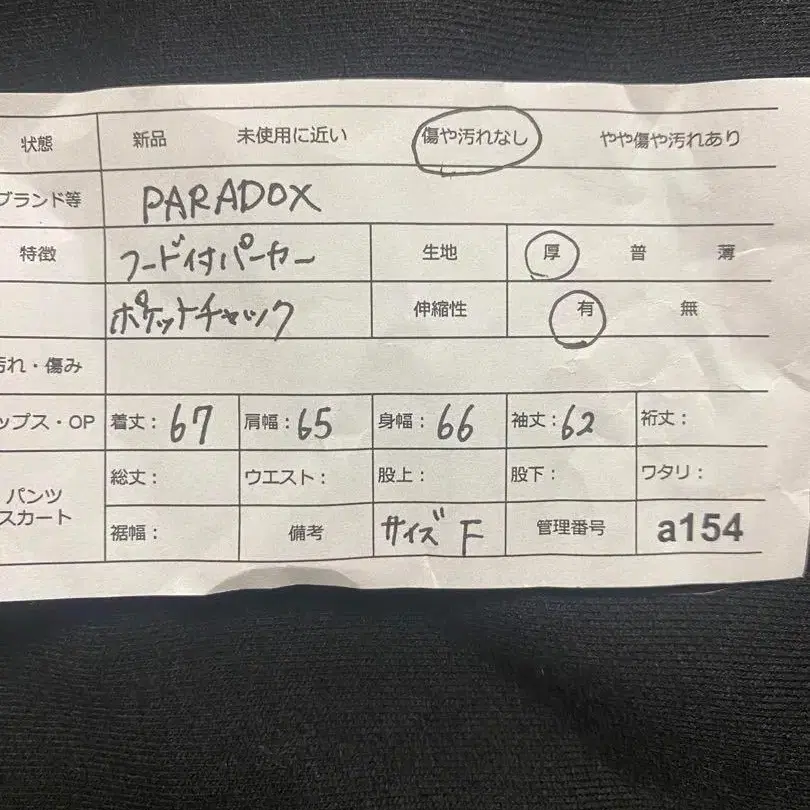 状態 新品 未使用に近い 傷や汚れなし やや傷や汚れあり
ブランド等 PARADOX
特徴 フード付パーカー 生地 厚 普 薄
ポケットチャック 伸縮性 有 無
汚れ・傷み
ップス・OP 着丈: 67 肩幅: 65 身幅: 66 袖丈: 62 裄丈:
パンツ スカート 総丈: ウエスト: 股上: 股下: ワタリ:
裾幅: 備考 サイズ F 管理番号 a154